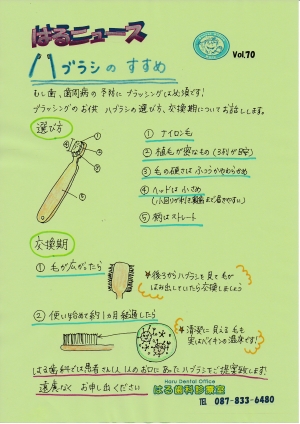 はるニュース
Vol.70
ハブラシのすすめ
むし歯、歯周病の予防にブラッシングは必須です!
ブラッシングのお供 ハブラシの選び方、交換期についてお話しします。
選び方
① ナイロン毛
② 植毛が密なもの (3列が目安)
③ 毛の硬さは ふつうかやわらかめ
④ ヘッドは 小さめ
⑤ 柄はストレート
交換期
① 毛が広がったら
*後ろからハブラシを見て毛が
はみ出していたら交換しましょう
② 使い始めて約1ヵ月経過したら
*清潔に見える毛も
実はバイキンの温床です!
はる歯科では患者さん1人1人のお口にあったハブラシをご提案致します!
遠慮なく お申し出ください
Haru Dental Office
はる歯科診療室
TEL 087-833-6480